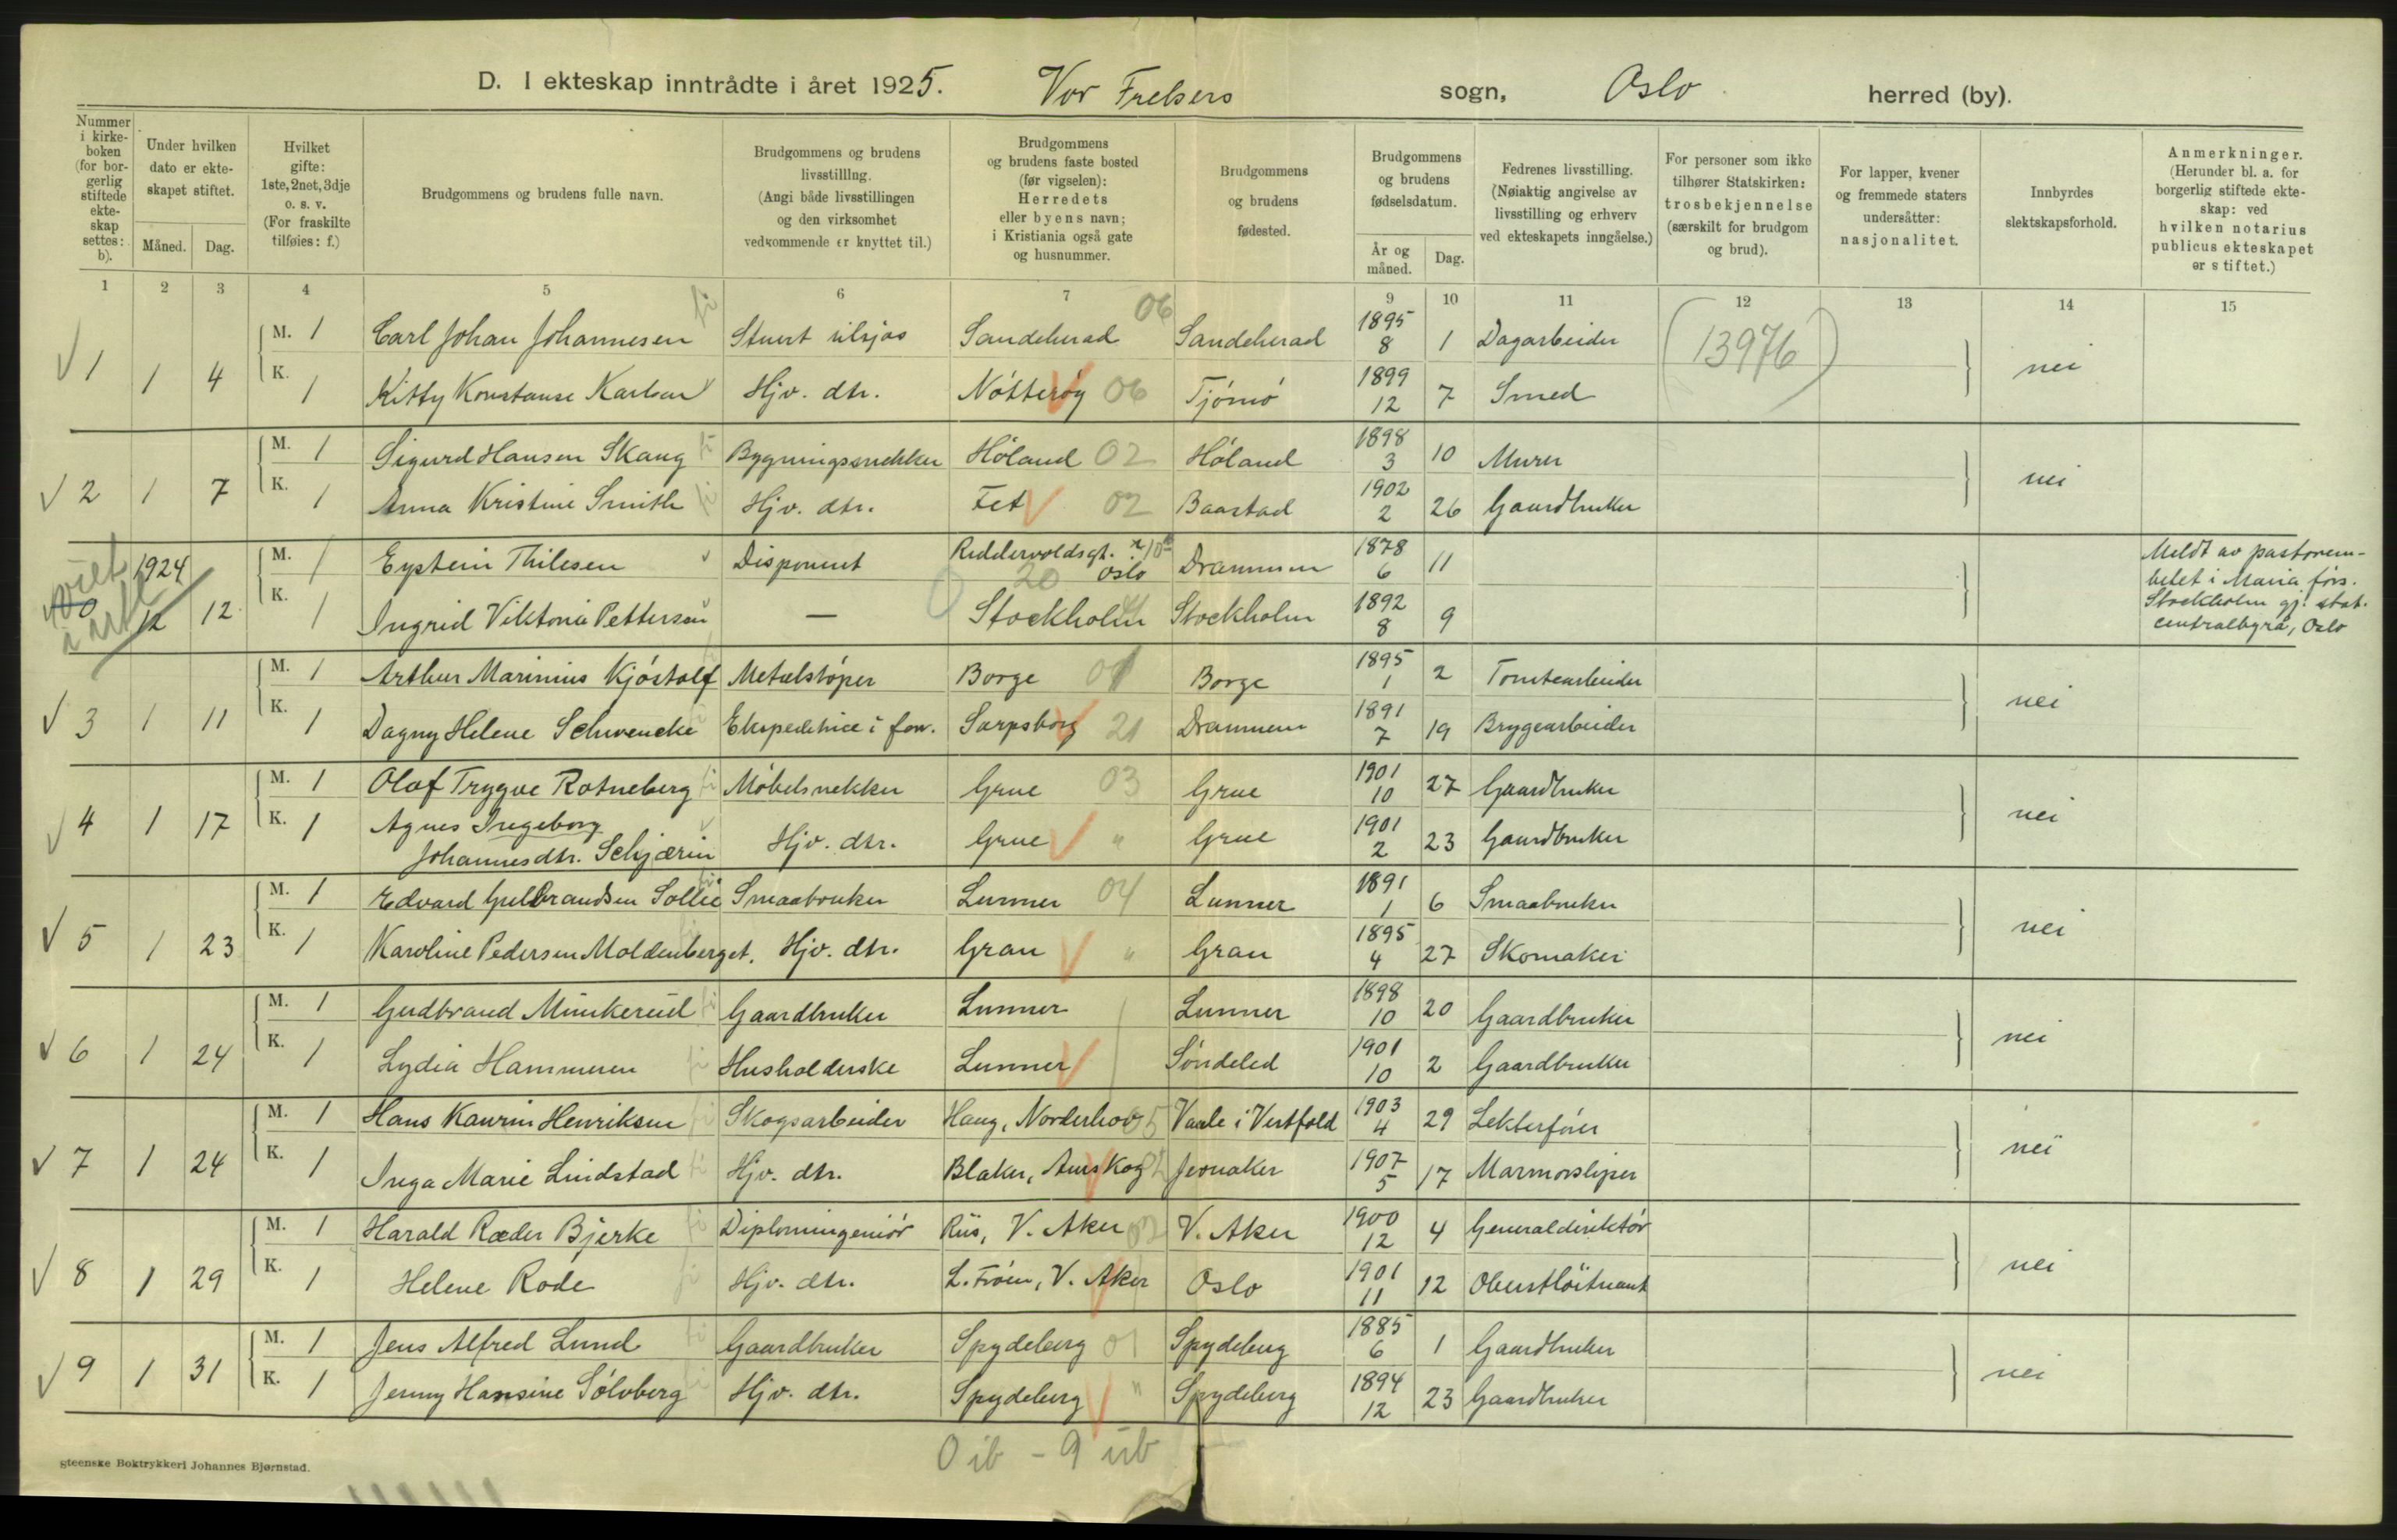 D. I ekteskap inntrådte i året 1925. Vor Frelsers sogn, Oslo herred (by).
Nummer i kirkeboken (for borgerlig stiftede ekteskap settes: b).
Under hvilken dato er ekteskapet stiftet.
Måned. Dag.
Hvilket gifte: 1ste, 2net, 3dje o. s. v. (For fraskilte tilføies: f.)
Brudgommens og brudens fulle navn.
Brudgommens og brudens livsstilling. (Angi både livsstillingen og den virksomhet vedkommende er knyttet til.)
Brudgommens og brudens faste bosted (før vigselen): Herredets eller byens navn; i Kristiania også gate og husnummer.
Brudgommens og brudens fødested.
Brudgommens og brudens fødselsdatum.
År og måned. Dag.
Fedrenes livsstilling. (Nøiaktig angivelse av livsstilling og erhverv ved ekteskapets inngåelse.)
For personer som ikke tilhører Statskirken: trosbekjennelse (særskilt for brudgom og brud).
For lapper, kvener og fremmede staters undersåtter: nasjonalitet.
Innbyrdes slektskapsforhold.
Anmerkninger. (Herunder bl. a. for borgerlig stiftede ekteskap: ved hvilken notarius publicus ekteskapet er stiftet.)
1 2 3 4 5 6 7 9 10 11 12 13 14 15
√ 1 1 4 M. 1 Carl Johan Johannesen Stuert tilsjøs Sandeherad 06 Sandeherad 1895 8 1 Dagarbeider (13976) nei
K. 1 Kitty Konstanse Karlsen Hjv. dtr. Nøtterøy 06 Tjømø 1899 12 7 Smed
√ 2 1 7 M. 1 Sigurd Hansen Skaug Bygningssnekker Høland 02 Høland 1898 3 10 Murer nei
K. 1 Anna Kristine Smith Hjv. dtr. Fet 02 Baastad 1902 2 26 Gaardbruker
1924 12 12 M. 1 Eystein Thilesen Disponent Riddervoldsgt. 10 Oslo 20 Drammen 1878 6 11
K. 1 Ingrid Viktoria Petterson — Stockholm Stockholm 1892 8 9
Meldt av pastorem-
betet i Maria förs.
Stockholm gj. stat.
centralbyrå, Oslo
√ 3 1 11 M. 1 Arthur Marinius Kjøstolf Metalstøper Borge 01 Borge 1895 1 2 Tomtearbeider nei
K. 1 Dagny Helene Schwencke Ekspeditrice i forr. Sarpsborg 21 Drammen 1891 7 19 Bryggearbeider
√ 4 1 17 M. 1 Olaf Trygve Rotneberg Møbelsnekker Grue 03 Grue 1901 10 27 Gaardbruker nei
K. 1 Agnes Ingeborg
Johannesdtr. Schjærin Hjv. dtr. Grue " Grue 1901 2 23 Gaardbruker
√ 5 1 23 M. 1 Edvard Gulbrandsen Sollie Smaabruker Lunner 04 Lunner 1891 1 6 Smaabruker nei
K. 1 Karoline Pedersen Moldenberget. Hjv. dtr. Gran " Gran 1895 4 27 Skomaker
√ 6 1 24 M. 1 Gudbrand Munkerud Gaardbruker Lunner Lunner 1898 10 20 Gaardbruker nei
K. 1 Lydia Hammeren Husholderske Lunner Søndeled 1901 10 2 Gaardbruker
√ 7 1 24 M. 1 Hans Kaurin Henriksen Skogsarbeider Haug, Norderhov 05 Vaale i Vestfold 1903 4 29 Lekterfører nei
K. 1 Inga Marie Lindstad Hjv. dtr. Blaker, Aurskog Jevnaker 1907 5 17 Marmorsliper
√ 8 1 29 M. 1 Harald Ræder Bjerke Diplomingeniør Riis, V. Aker 02 V. Aker 1900 12 4 Generaldirektør nei
K. 1 Helene Rode Hjv. dtr. L. Frøen, V. Aker Oslo 1901 11 12 Oberstløitnant
√ 9 1 31 M. 1 Jens Alfred Lund Gaardbruker Spydeberg 01 Spydeberg 1885 6 1 Gaardbruker nei
K. 1 Jenny Hansine Sølvberg Hjv. dtr. Spydeberg " Spydeberg 1894 12 23 Gaardbruker
0 ib - 9 ub
gteenske Boktrykkeri Johannes Bjørnstad.